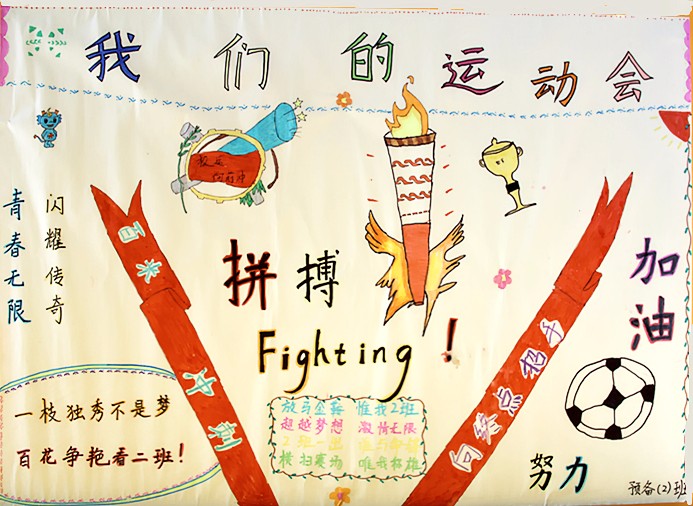 我们的运动会
青春无限
闪耀传奇
百米
冲刺
拼搏
Fighting!
加油
向终点招手
一枝独秀不是梦
百花争艳看二班!
惟我2班
超越梦想 激情无限
横扫赛场 唯我称雄
努力
预备(2)班